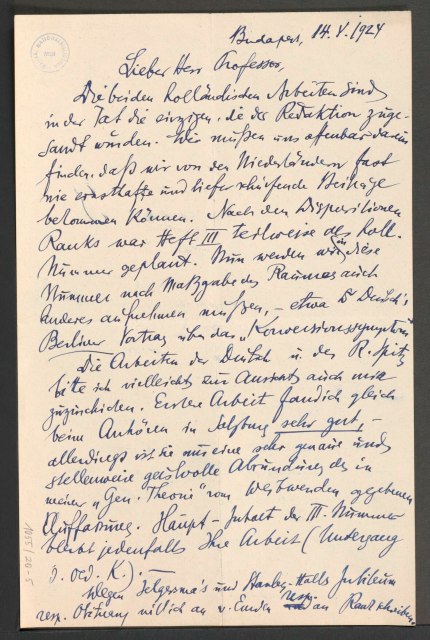 Budapest, 14. V. 1924
Lieber Herr Professor,
Die beiden holländischen Arbeiten sind
in der Tat die einzigen, die der Redaktion zuge-
sandt wurden. Wir müssen uns offenbar darein
finden, daß wir von den Niederländern fast
nie ernsthafte und tiefer schürfende Beiträge
bekommen können. Nach den Dispositionen
Ranks war Heft III teilweise als holl.
Nummer geplant. Nun werden wir in diese
Nummer nach Maßgabe des Raumes auch
anderes aufnehmen müssen, – etwa Dr Deutsch's
Berliner Vortrag über das „Konversionssymptom
Die Arbeiten der Deutsch u. des R. Spitz
bitte ich vielleicht zur Ansicht auch mir
zuzuschicken. Erstere Arbeit fand ich gleich
beim Anhören in Salzburg sehr gut, –
allerdings ist sie nur eine sehr genaue und
stellenweise geistvolle Abrundung der in
meiner „Gen. Theorie" vom gegebenen
Auffassung. Haupt-Inhalt der III. Nummer
bleibt jedenfalls Ihre Arbeit (Untergang
d. Oed. K.). –
Wegen Jelgersma's und Stanley-Halls Jubiläum
resp. Obituary will ich an v. Emden resp. an Rank schreiben.